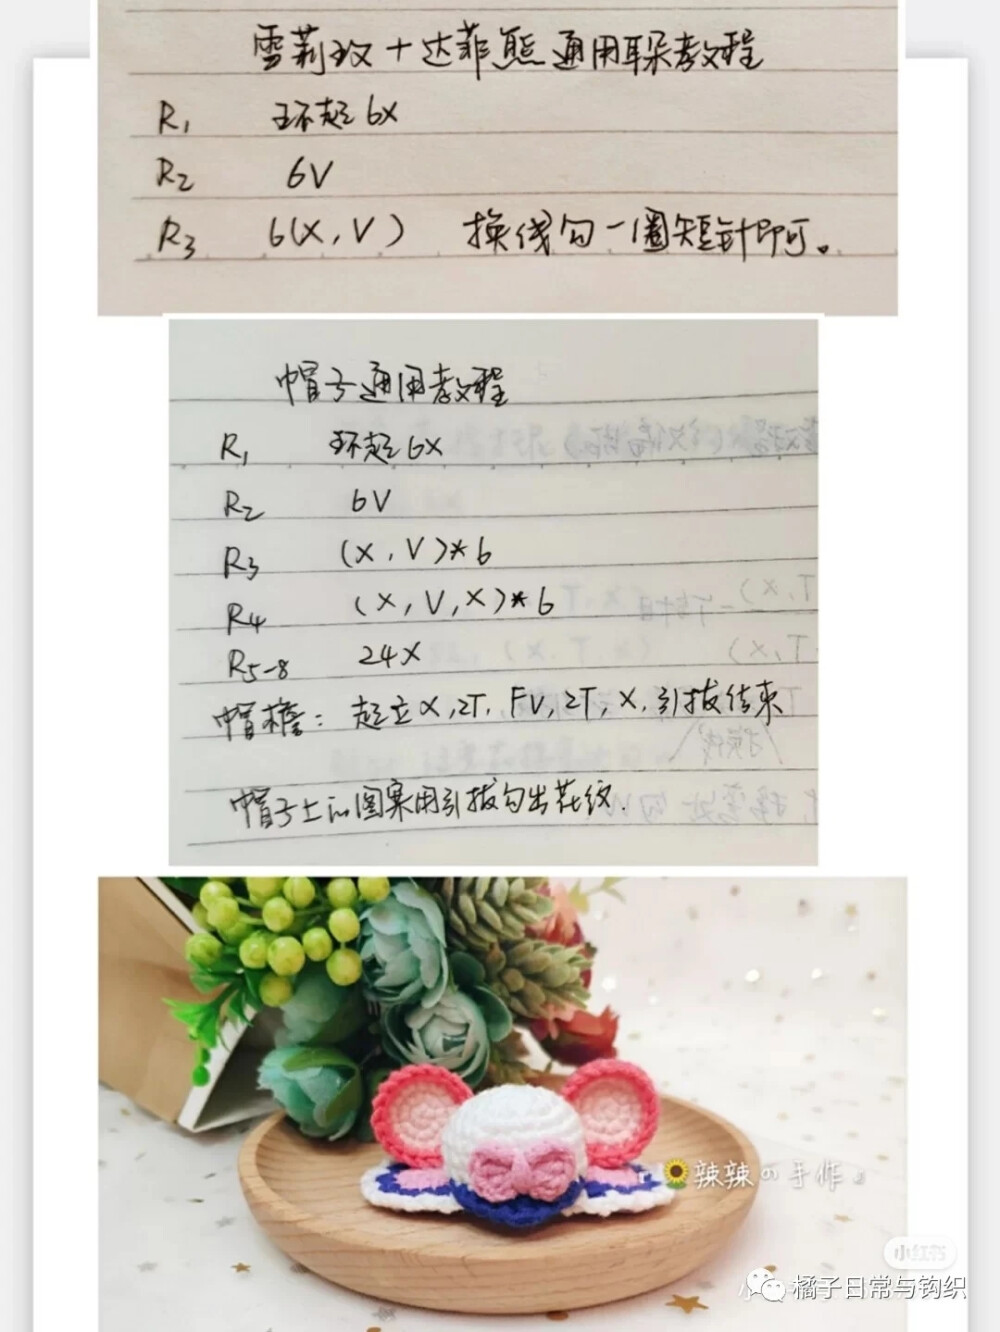 雪莉玫+达菲熊通用耳朵教程
R1 环起6X
R2 6V
R3 6(X,V) 换线勾一圈短针即可。
帽子通用教程
R1 环起6X
R2 6V
R3 (X,V)*6
R4 (X,V,X)*6
R5-8 24X
帽檐:起立X,2T,FV,2T,X,引拔结束
帽子上的图案用引拔勾出花纹.
辣辣の手作。
小红书
橘子日常与钩织